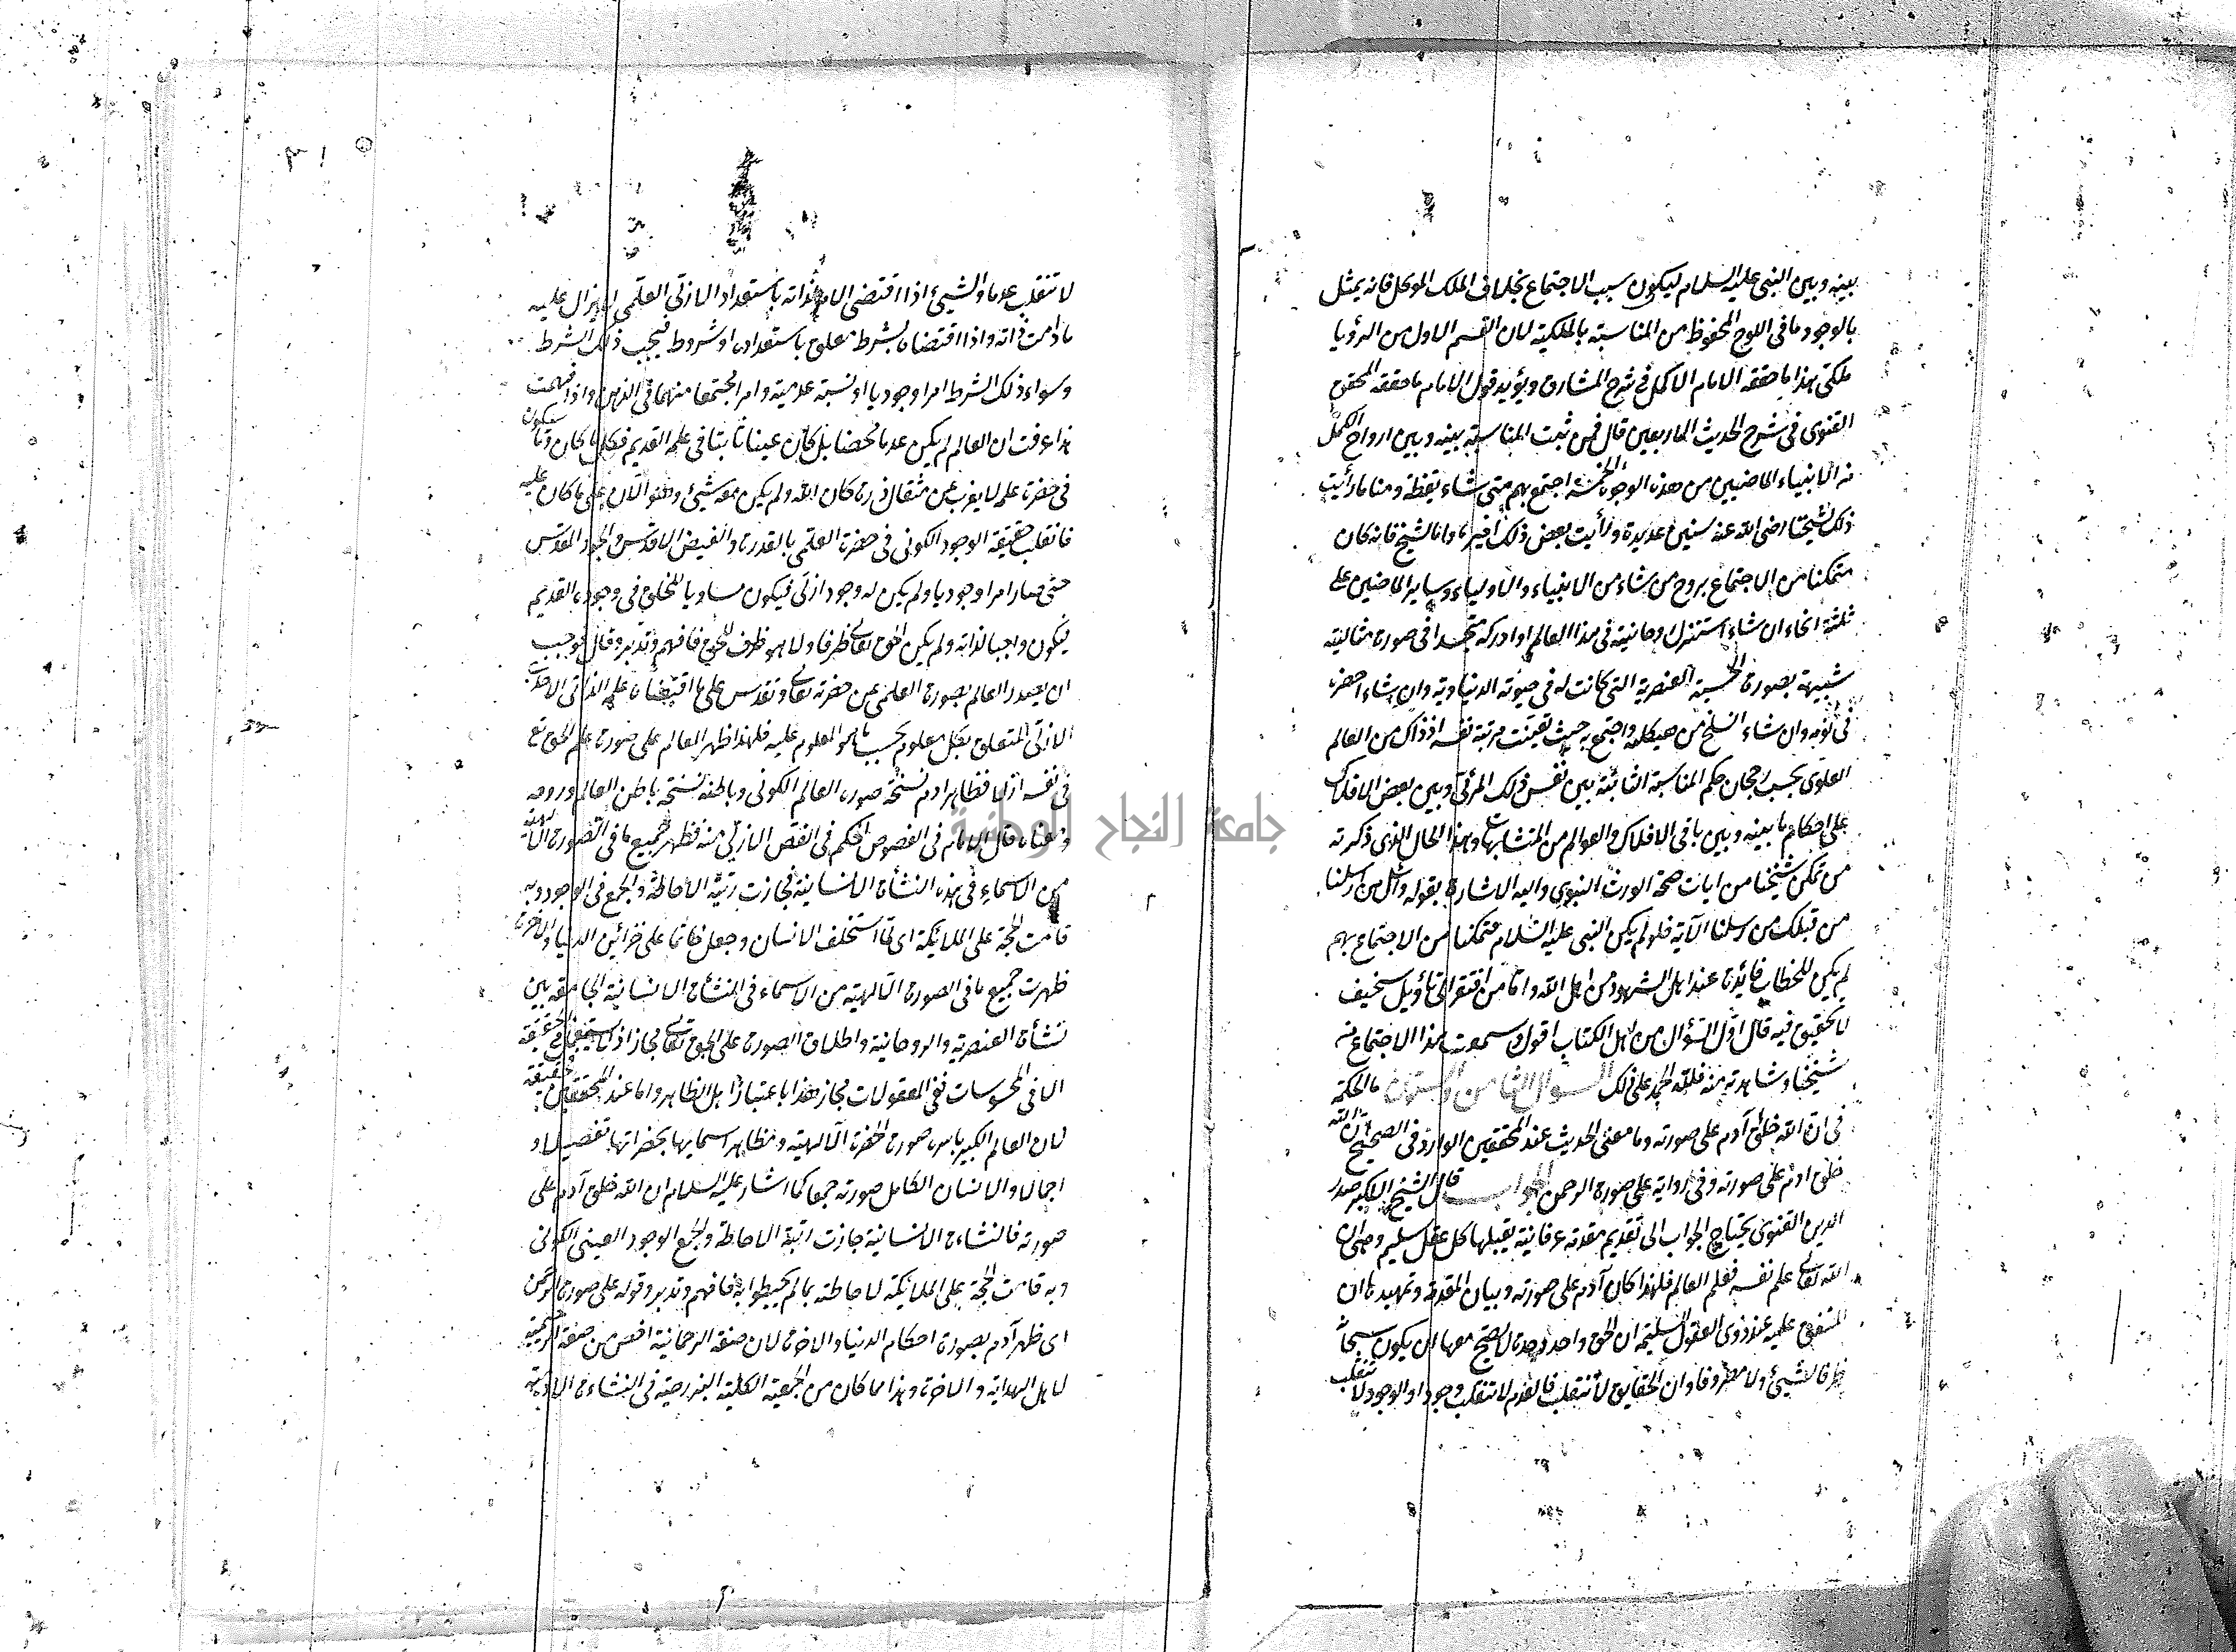 بينه وبين النبى عليه السلام ليكون سبب الاجتماع بخلاف الملك الموكل فانه يمثل
بالوجود ما فى اللوح المحفوظ من المناسبة بالملكية لان القسم الاول من الرؤيا
ملكى هذا ما حققه الامام الاكمل فى شرح المشارق ويؤيد قول الامام ما حققه المحقق
القنوى فى شرح الحديث الاربعين قال فمن ثبت المناسبة بينه وبين ارواح الكمل
من الانبياء الماضيين من هذه الوجوه الخمسة اجتمع بهم متى شاء يقظة ومناما رأيت
ذلك لشيخنا رضى الله عنه سنين عديدة ورأيت بعض ذلك اخيرا واما الشيخ فانه كان
متمكنا من الاجتماع بروح من شاء من الانبياء والاولياء وساير الماضيين على
ثلثة انحاء ان شاء استنزل روحانيته فى هذا العالم او ادركه متجسدا فى صورة مثالية
شبيهة بصورة الحسية العنصرية التى كانت له فى حيوته الدنياوية وان شاء احضره
فى نومه وان شاء انسلخ من هيكله واجتمع به حيث تعينت مرتبة نفسه اذ ذاك من العالم
العلوى بحسب رجحان حكم المناسبة الثابتة بين نفس ذلك المرئى وبين بعض الافلاك
على احكام ما بينه وبين باقى الافلاك والعوالم من المتشابهات وهذا الحال الذى ذكرته
من تمكن شيخنا من ايات صحة الورث النبوى واليه الاشارة بقوله واسئل من ارسلنا
من قبلك من رسلنا الآية فلو لم يكن النبى عليه السلام متمكنا من الاجتماع بهم
لم يكن للخطاب فائدة عند اهل الشهود من اهل الله واما من افتقر الى تأويل سخيف
لا تحقيق فيه قال اول السؤال من اهل الكتاب اقول وسمعت هذا الاجتماع من
شيخنا وشاهدته منه فلله الحمد على ذلك السؤال الثامن والستون ما الحكمة
فى ان الله خلق آدم على صورته وما معنى الحديث عند المحققين الوارد فى الصحيح ان الله
خلق ادم على صورته وفى رواية على صورة الرحمن الجواب قال الشيخ الكبير صدر
الدين القنوى يحتاج الجواب الى تقديم مقدمة عرفانية يقبلها كل عقل سليم وهى ان
الله تعالى علم نفسه فعلم العالم فلهذا كان آدم على صورته وبيان المقدمة وتمهيدها ان
المتفق عليه عند ذوى العقول السليمة ان الحق واحد وحدة لا يصح معها ان يكون سبحانه
ظرفا لشيئ ولا مظروفا وان الحقايق لا تنقلب فالعدم لا تنقلب وجودا والوجود لا تنقلب
لا تنقلب عدما والشيئ اذا اقتضى الامر لذاته باستعداد الازلى العلمى لا يزال عليه
ما دامت ذاته واذا اقتضاه بشرط معلق باستعداده او شروط فيجب ذلك الشرط
وسواء ذلك الشرط امرا وجوديا او نسبة عدمية وامرا مجتمعا منهما فى الذهن واذا فهمت
هذا عرفت ان العالم لم يكن عدما محضا بل كان عينا ثابتا فى علمه القديم فكل ما كان وما سيكون
فى حضرة علمه لا يعزب عن مثقال ذرة كان الله ولم يكن معه شيئ وهو الآن على ما كان عليه
فانقلب حقيقة الوجود الكونى فى حضرة العلمى بالقدرة والفيض الاقدس والجود المقدس
حتى صار امرا وجوديا ولم يكن له وجود ازلى فيكون مساويا للخلق فى وجوده القديم
فيكون واجبا لذاته ولم يكن الحق تعالى ظرفا ولا هو ظرف للحق فافهم وتدبر وقال فوجب
ان يصدر العالم بصورة العلمى من حضرته تعالى وتقدس على ما اقتضاه علمه الذاتى
الازلى المتعلق بكل معلوم بحسب ما هو المعلوم عليه فلهذا ظهر العالم على صورة علم الحق تع
فى نفسه ازلا فظاهر ادم نسخة صورة العالم الكونى وباطنه نسخة باطن العالم وروحه
ومعناه قال الامام فى الفصوص الحكم فى الفص الازلى منه فظهر جميع ما فى الصورة الالهية
من الاسماء فى هذه النشأة الانسانية فحازت رتبة الاحاطة والجمع فى الوجود وبه
قامت الحجة على الملائكة اى لما استخلف الانسان وجعل خاتما على خزائن الدنيا والاخرة
ظهرت جميع ما فى الصورة الآلهية من الاسماء فى النشأة الانسانية الجامعة بين
نشأة العنصرية والروحانية واطلاق الصورة على الحق تعالى مجاز اذ لا يستعمل فى الحقيقة
الا فى المحسوسات ففى المعقولات مجاز هذا باعتبار اهل الظاهر واما عند المحققين حقيقة
لان العالم الكبير باسره صورة الحضرة الآلهية ومظاهر اسمايها بحضراتها تفصيلا و
اجمالا والانسان الكامل صورته جمعا كما اشار عليه السلام ان الله خلق آدم على
صورته فالنشاءة الانسانية حازت رتبة الاحاطة والجمع الوجود العينى الكونى
وبه قامت الحجة على الملائكة لاحاطته بما لم يحيطوا به فافهم وتدبر وقوله على صورة الرحمن
اى ظهر آدم بصورة احكام الدنيا والاخرة لان صفة الرحمانية اخص من صفة الرحيمية
لاهل الهداية والاخرة وهذا مما كان من الجمعية الكلية البرزخية فى النشاءة الادمية
جامعة النجاح الوطنية